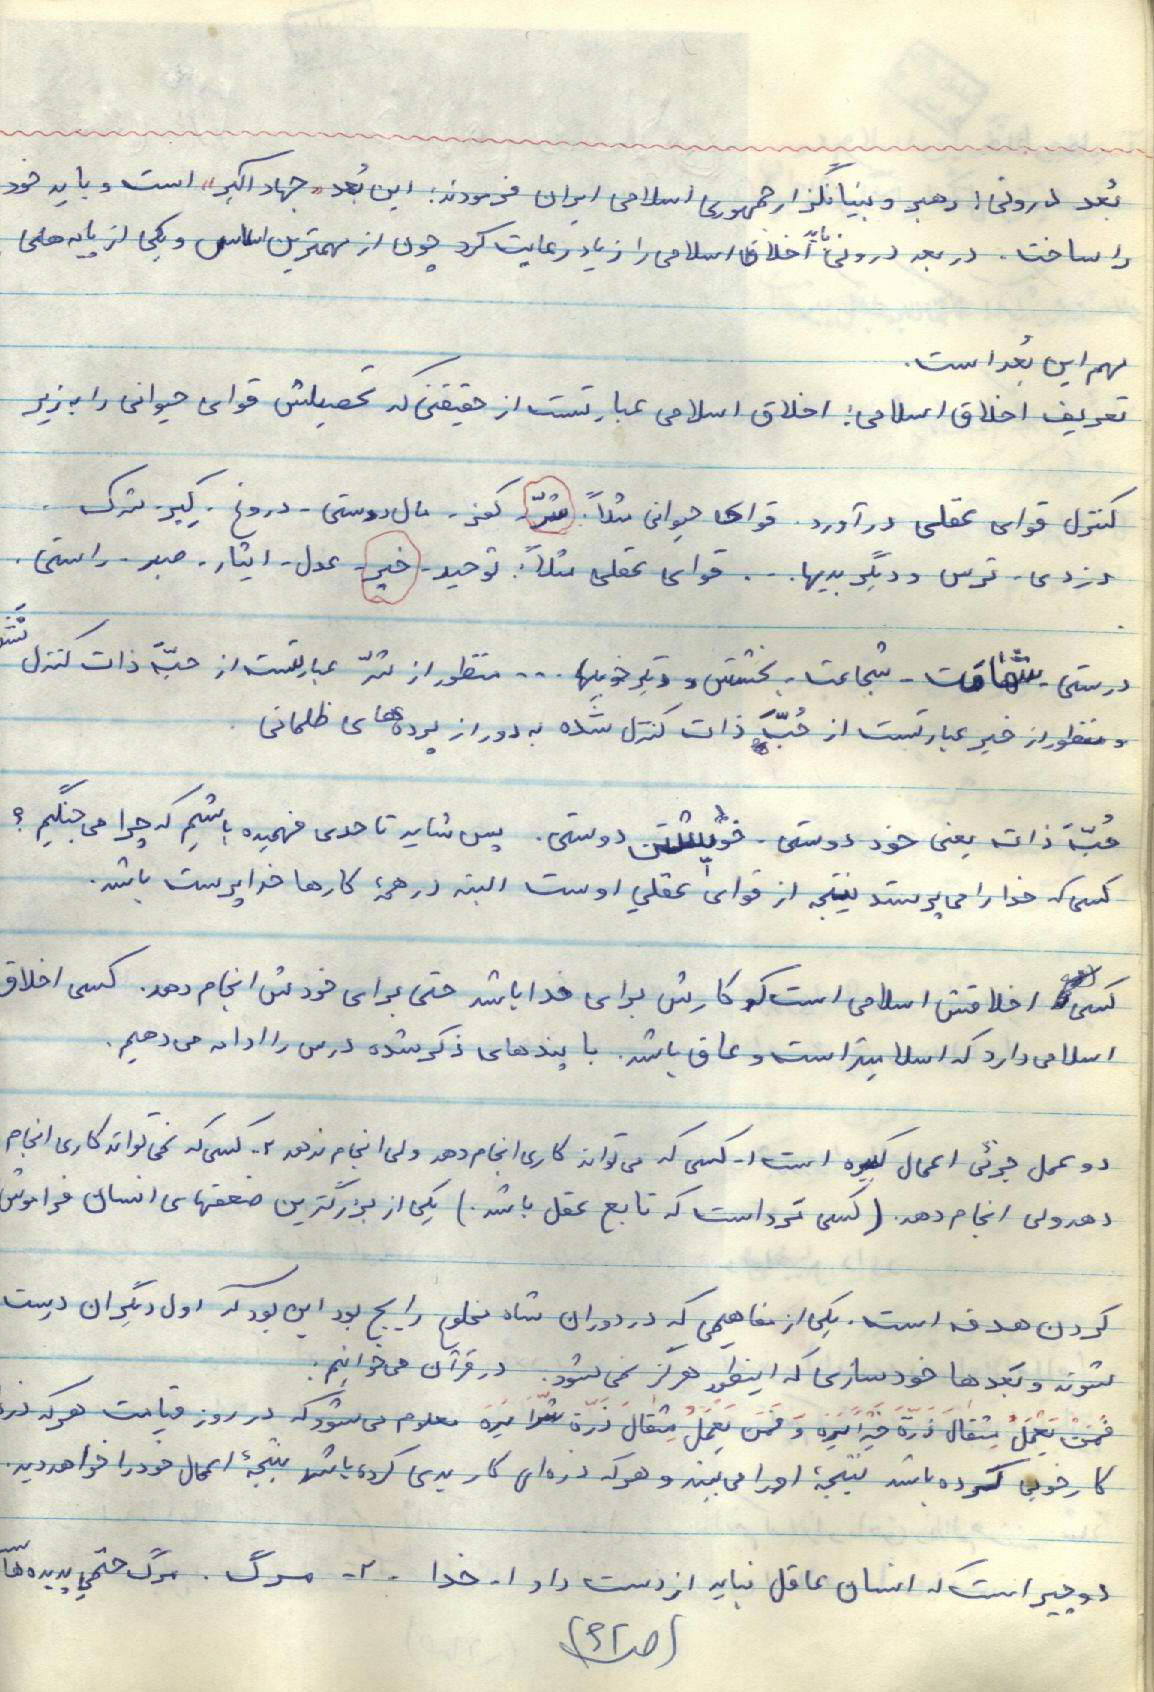 بُعد درونی: رهبر و بنیانگذار جمهوری اسلامی ایران فرمودند: این بُعد «جهاد اکبر» است و باید خود
را ساخت. در بعد درونی باید اخلاق اسلامی را زیاد رعایت کرد چون از مهمترین اساس و یکی از پایه‌های
مهم این بُعد است.
تعریف اخلاق اسلامی: اخلاق اسلامی عبارتست از حقیقتی که تحصیلش قوای حیوانی را به زیر
کنترل قوای عقلی درآورد. قوای حیوانی مثلاً: شرّ - کفر - مال دوستی - دروغ - کبر - شرک -
دزدی - ترس و دیگر بدیها... قوای عقلی مثلاً: توحید - خیر - عدل - ایثار - صبر - راستی -
درستی - - شجاعت - بخشش و دیگر خوبیها ... منظور از شرّ عبارتست از حبّ ذات کنترل نشده
و منظور از خیر عبارتست از حُبّ ذات کنترل شده به دور از پرده‌های ظلمانی.
حُبّ ذات یعنی خود دوستی - خویشتن دوستی. پس شاید تا حدی فهمیده باشیم که چرا می‌جنگیم؟
کسی که خدا را می‌پرستد نتیجه از قوای عقلی اوست البته در همهٔ کارها خداپرست باشد.
کسی اخلاقش اسلامی است که کارش برای خدا باشد حتی برای خودش انجام دهد. کسی اخلاق
اسلامی دارد که است و باشد. با پندهای ذکر شده درس را ادامه می‌دهیم.
دو عمل جزئی اعمال است ۱- کسی که می‌تواند کاری انجام دهد ولی انجام ندهد ۲- کسی که نمی‌تواند کاری انجام
دهد ولی انجام دهد. (کسی است که تابع عقل باشد.) یکی از بزرگترین ضعفهای انسان فراموش
کردن هدف است. یکی از مفاهیمی که در دوران شاه مخلوع رایج بود این بود که اول دیگران درست
شوند و بعدها خودسازی که اینطور هرگز نمی‌شود. در قرآن می‌خوانیم:
فَمَنْ يَعْمَلْ مِثْقالَ ذَرَّةٍ خَيْراً يَرَه وَ مَن يَعْمَلْ مِثْقالَ ذَرَّةٍ شَرّاً يَرَه معلوم می‌شود که در روز قیامت هر که ذره‌ای
کار خوبی کرده باشد نتیجهٔ او را می‌بیند و هر که ذره‌ای کار بدی کرده باشد نتیجهٔ اعمال خود را خواهد دید.
دو چیز است که انسان عاقل نباید از دست داد ۱- خدا - ۲- مرگ. مرگ حتمی پدیده‌ها